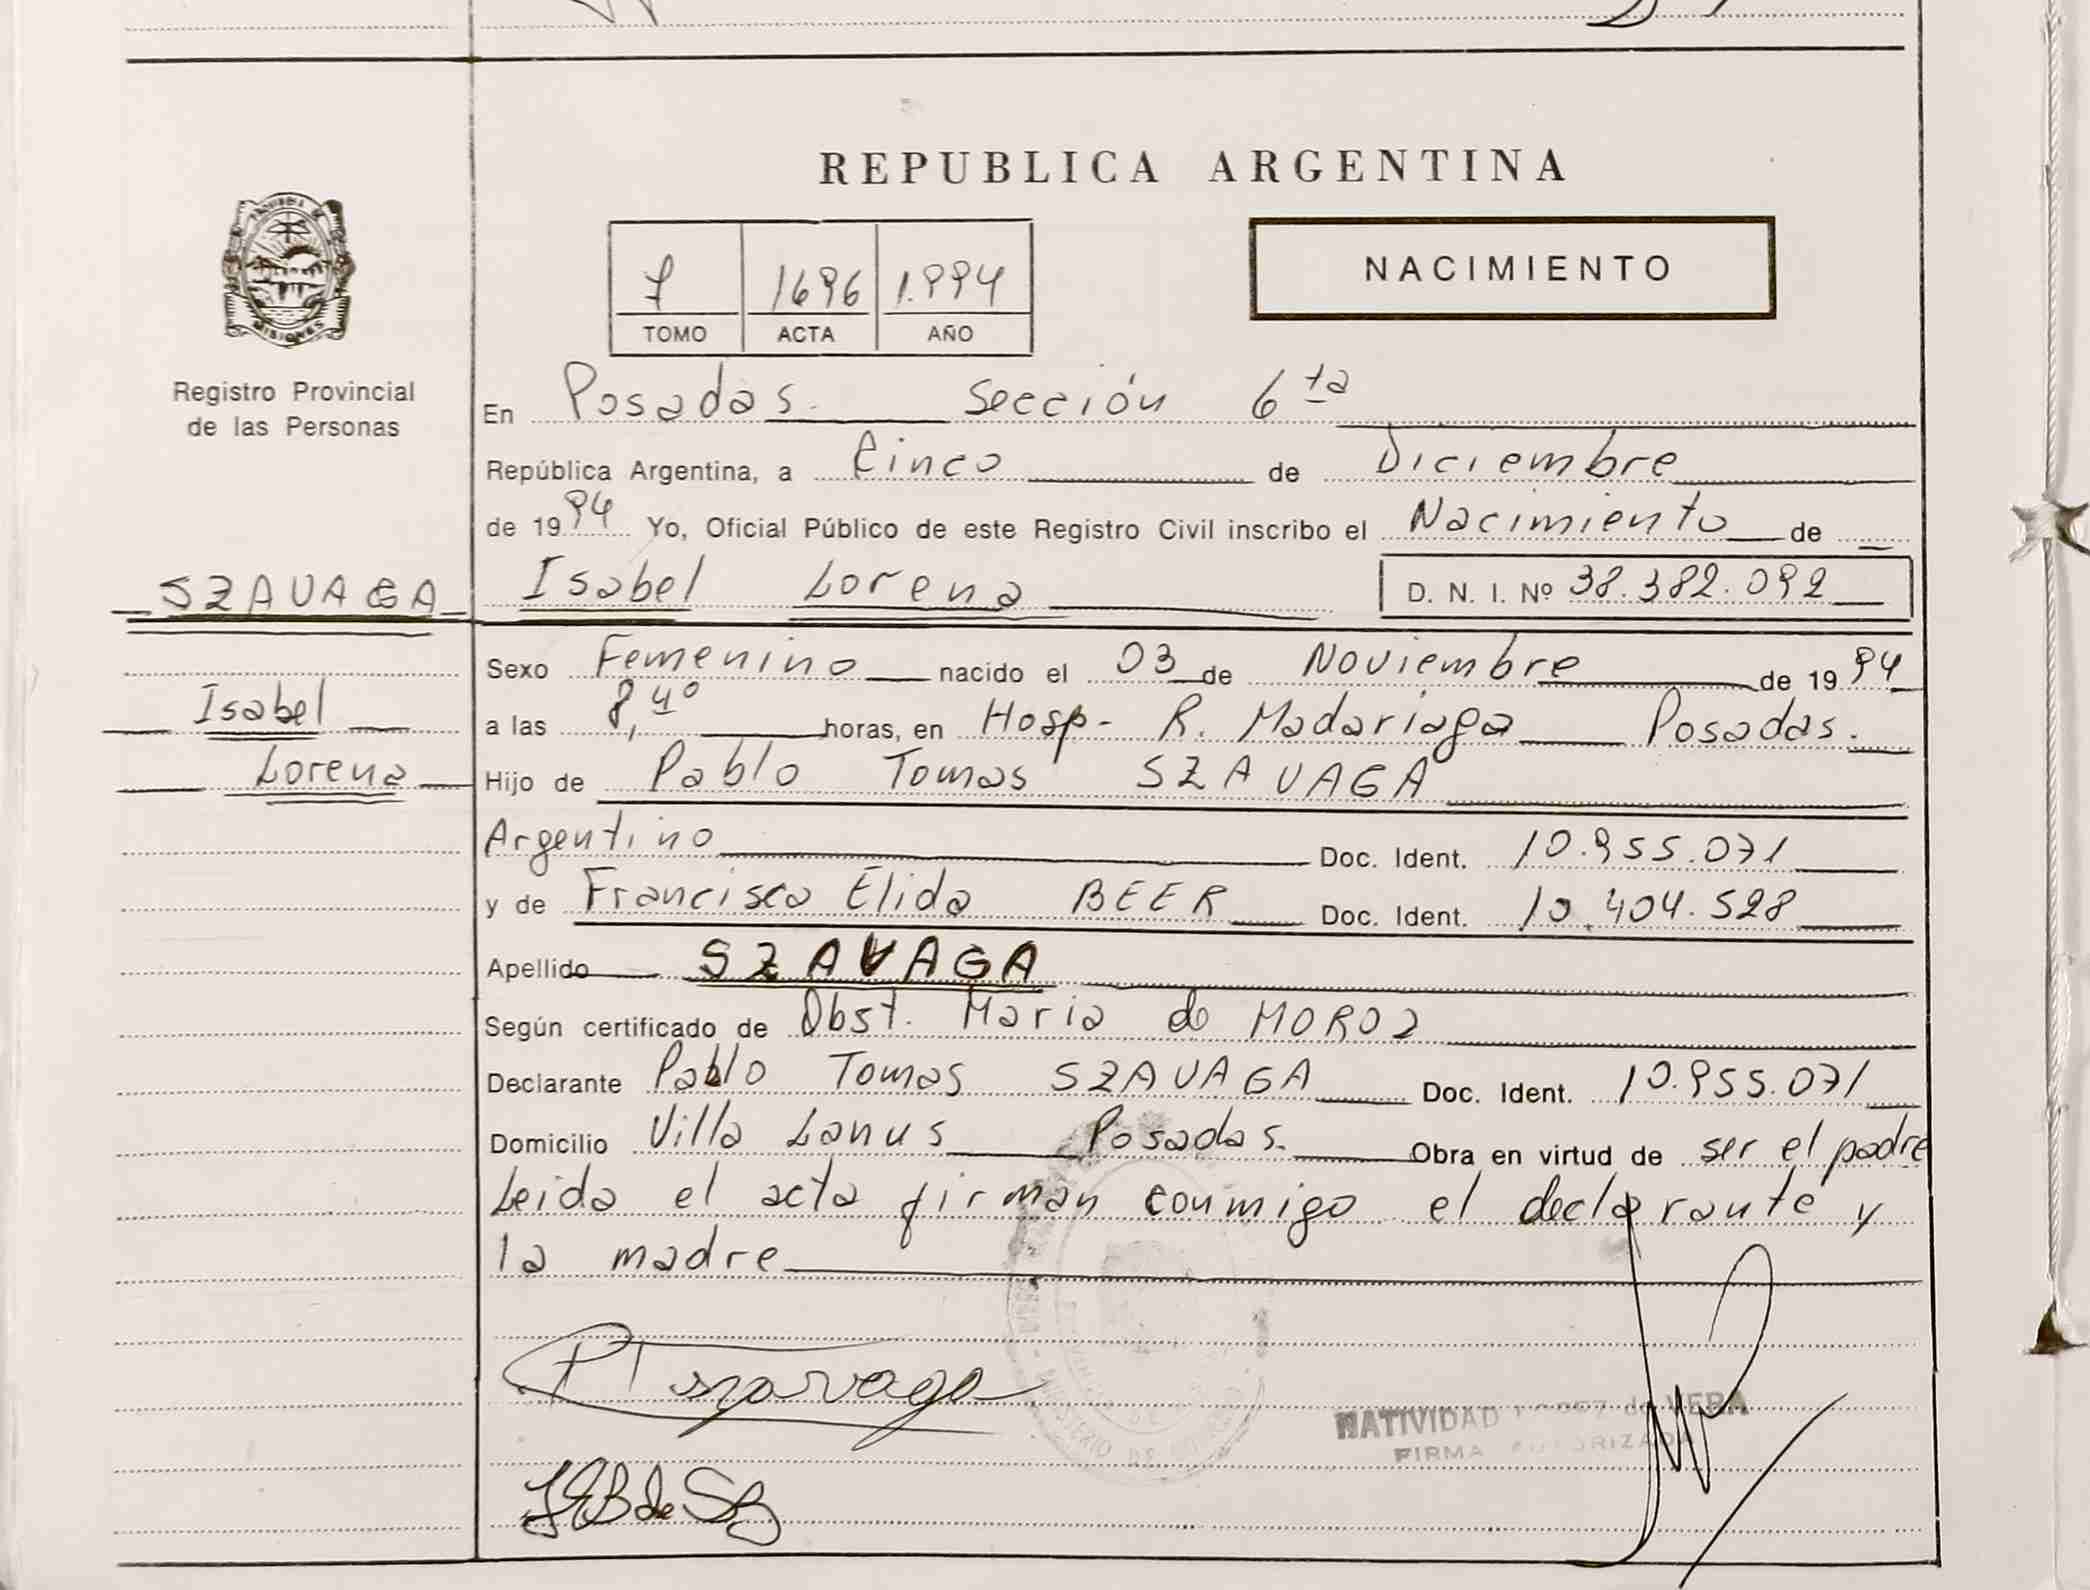 REPUBLICA ARGENTINA
PROVINCIA DE MISIONES
Registro Provincial
de las Personas
NACIMIENTO
7 1696 1.994
TOMO ACTA AÑO
En Posadas. Sección 6ta
República Argentina, a Cinco de Diciembre
de 1994 Yo, Oficial Público de este Registro Civil inscribo el Nacimiento de
SZAVAGA
Isabel Lorena D. N. I. Nº 38.382.092
Sexo Femenino nacido el 03 de Noviembre de 1994
Isabel
a las 8,40 horas, en Hosp- R. Madariaga Posadas.
Lorena
Hijo de Pablo Tomas SZAVAGA
Argentino Doc. Ident. 10.955.071
y de Francisca Elida BEER Doc. Ident. 10.404.528
Apellido SZAVAGA
Según certificado de Obst. Maria de MOROZ
Declarante Pablo Tomas SZAVAGA Doc. Ident. 10.955.071
Domicilio Villa Lanus Posadas. Obra en virtud de ser el padre
Leida el acta firman conmigo el declarante y
la madre
P T Szavaga
NATIVIDAD LOPEZ de VERA
FIRMA AUTORIZADA